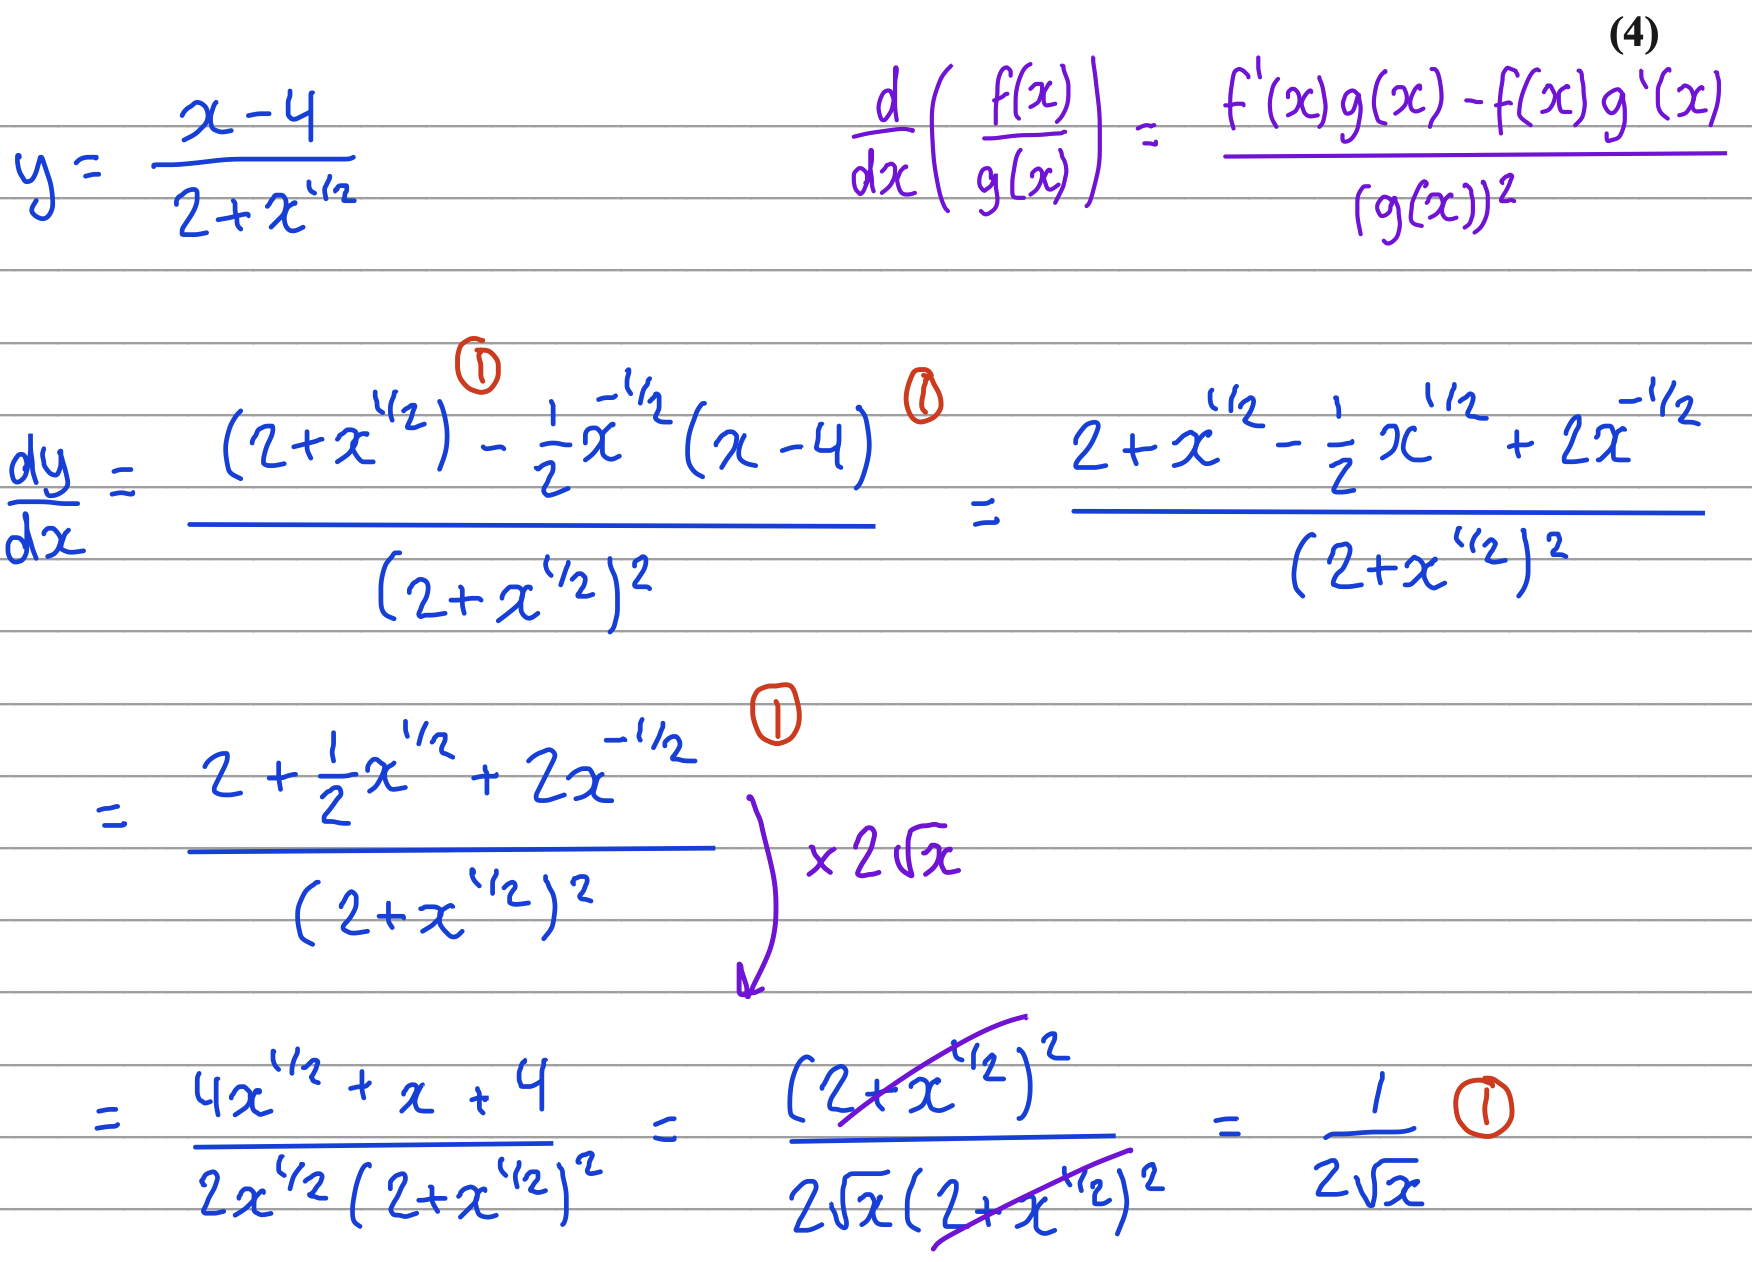 (4)
y = (x - 4)/(2 + x^{1/2})    d/dx (f(x)/g(x)) = (f'(x)g(x) - f(x)g'(x))/(g(x))^2
dy/dx = ((2 + x^{1/2}) - 1/2 x^{-1/2}(x - 4))/(2 + x^{1/2})^2 ① ① = (2 + x^{1/2} - 1/2 x^{1/2} + 2x^{-1/2})/(2 + x^{1/2})^2
= (2 + 1/2 x^{1/2} + 2x^{-1/2})/(2 + x^{1/2})^2 ①
× 2√x
= (4x^{1/2} + x + 4)/(2x^{1/2}(2 + x^{1/2})^2) = (2 + x^{1/2})^2/(2√x(2 + x^{1/2})^2) = 1/(2√x) ①